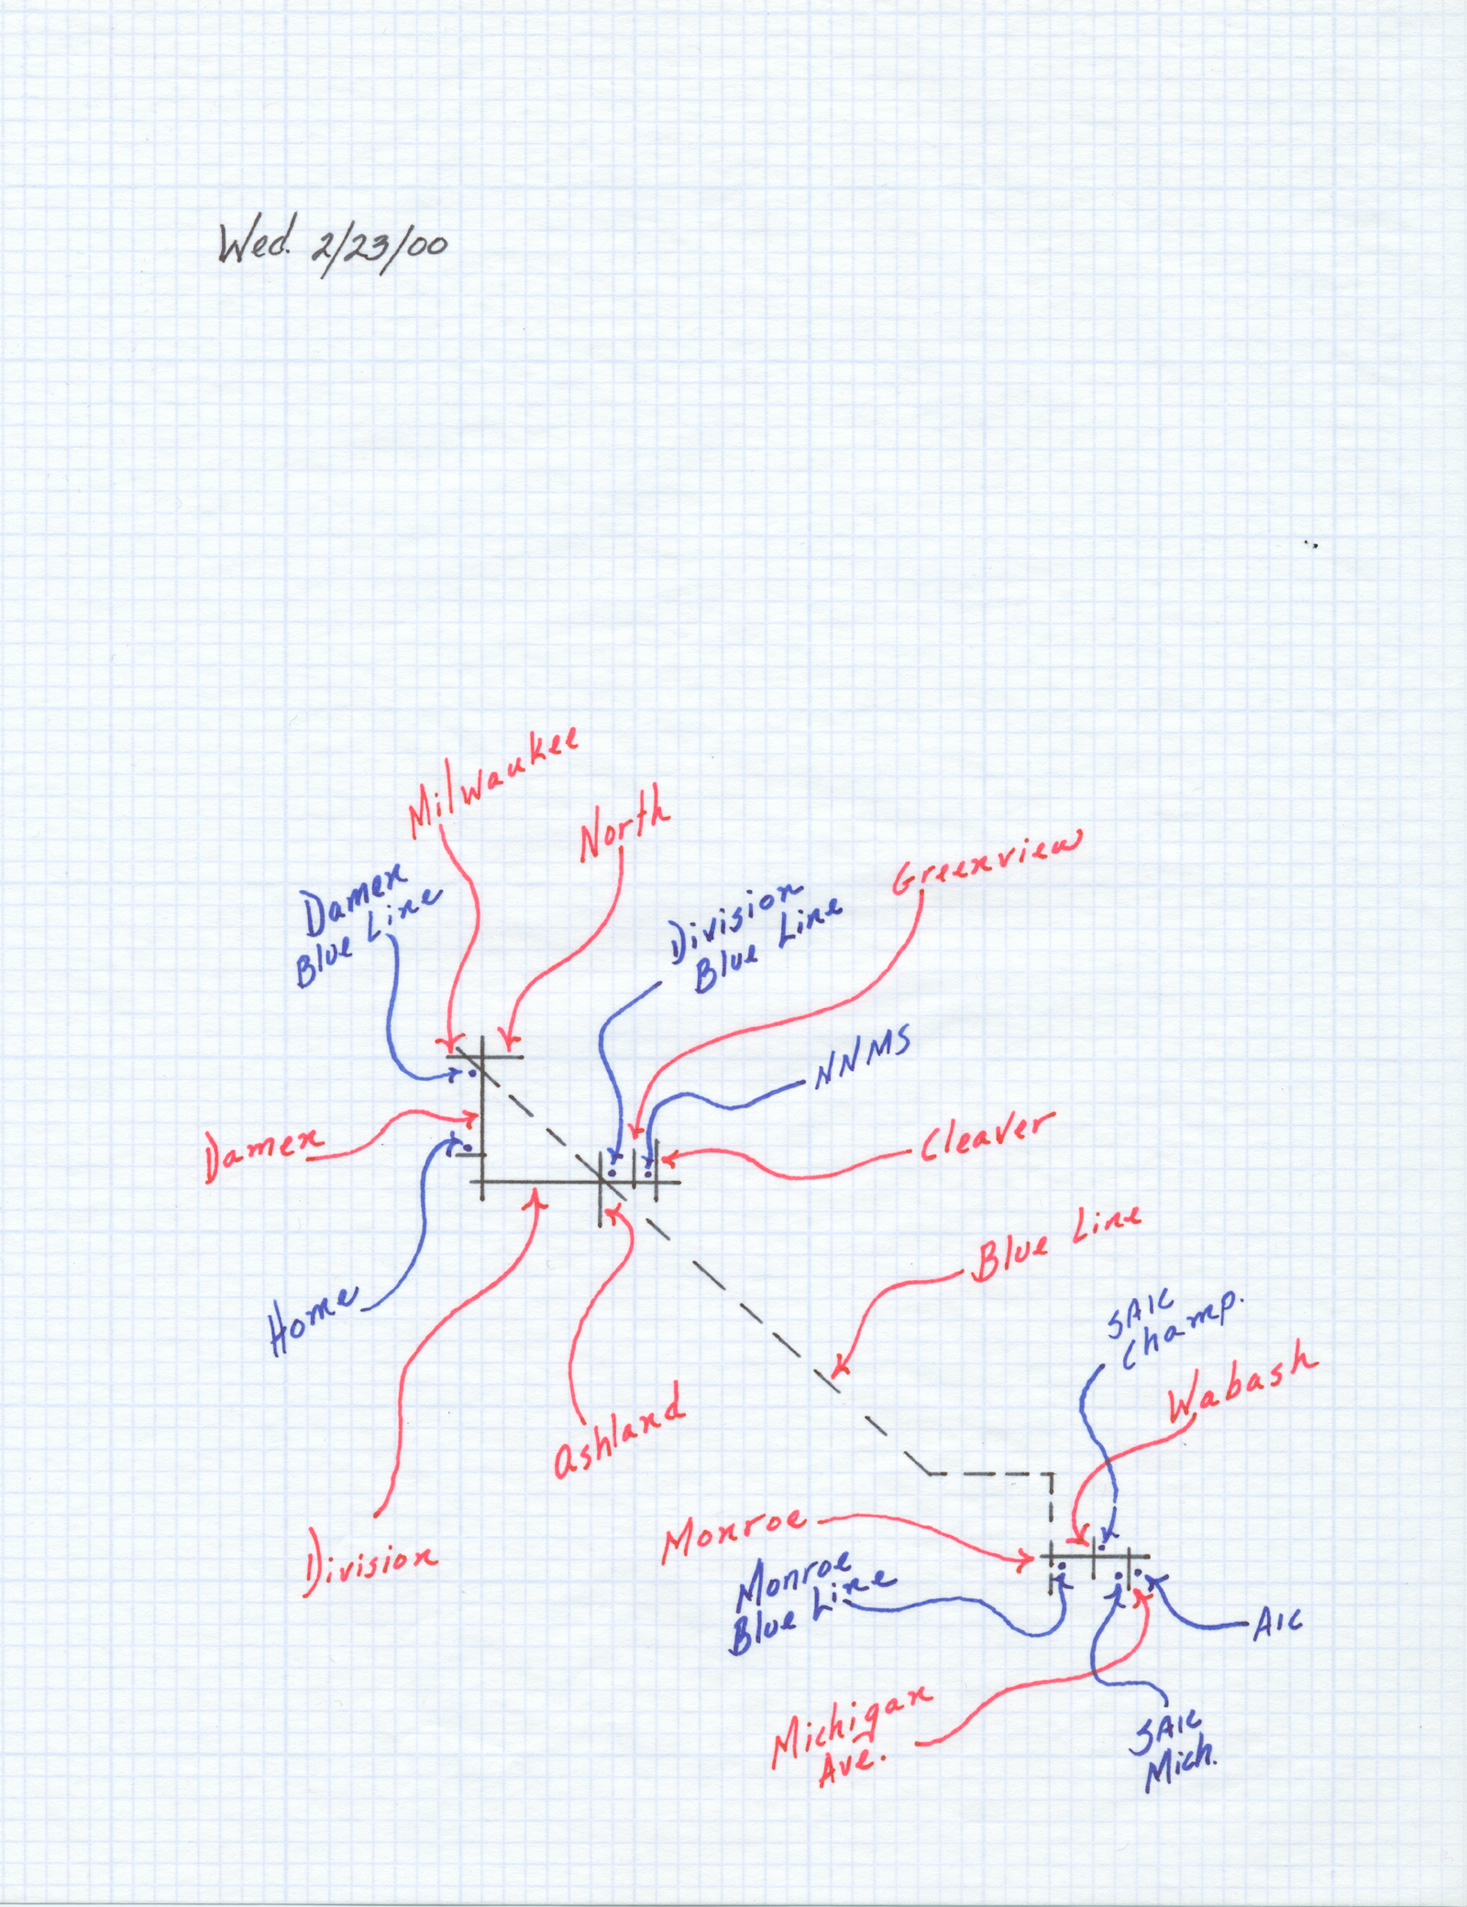 Wed. 2/23/00
Milwaukee
North
Damen
Blue Line
Division
Blue Line
Greenview
NNMS
Damen
Cleaver
Home
Blue Line
SAIC
Champ.
Wabash
Ashland
Monroe
Division
Monroe
Blue Line
AIC
Michigan
Ave.
SAIC
Mich.